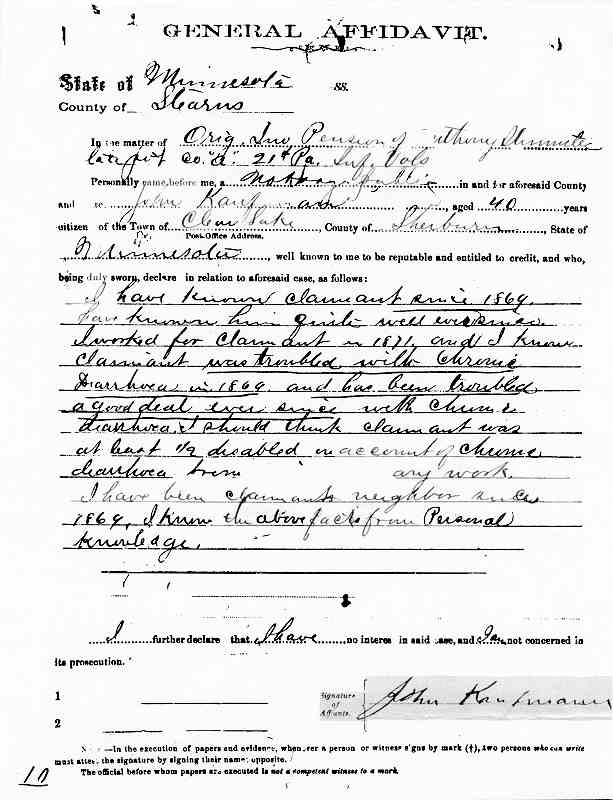 GENERAL AFFIDAVIT.
State of Minnesota ss.
County of Stearns
In the matter of Orig. Inv Pension of Anthony
late pvt Co. "a" 21st Pa. Inf. Vols
Personally came before me, a Notary Public in and for aforesaid County
and John Kaufmann, aged 40 years
citizen of the Town of Clear Lake, County of Sherburn, State of
Post-Office Address.
Minnesota, well known to me to be reputable and entitled to credit, and who,
being duly sworn, declare in relation to aforesaid case, as follows:
I have known claimant since 1869.
have known him quite well ever since.
I worked for claimant in 1871, and I know
claimant was troubled with chronic
Diarrhoea in 1869 and has been troubled
a good deal ever since with chronic
diarrhoea. I should think claimant was
at least 1/2 disabled on account of chronic
diarrhoea from any work.
I have been claimants neighbor since
1869, I know the above facts from Personal
Knowledge.
I further declare that I have no interes in said case, and I am not concerned in
its prosecution.
1
Signature of Affiants.
John Kaufmann
2
—In the execution of papers and evidence, whenever a person or witness signs by mark (†), two persons who can write
must attest the signature by signing their names opposite.
The official before whom papers are executed is not a competent witness to a mark.
10